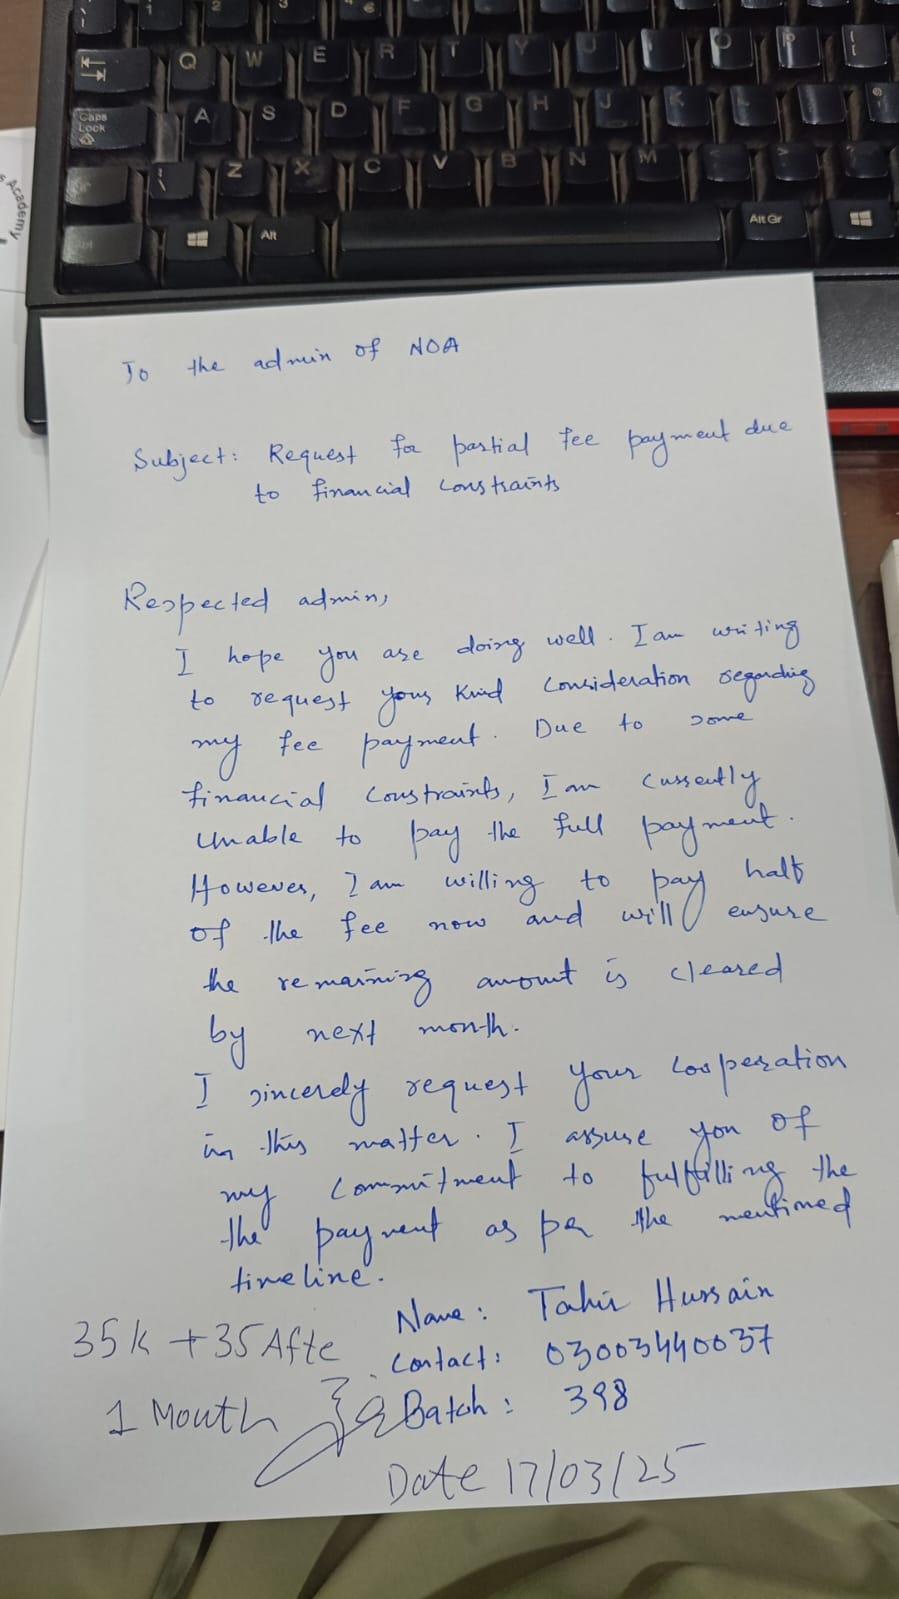 Academy
Q W E R T Y U I O P
Caps Lock A S D F G H J K L
Z X C V B N M
Alt Alt Gr
To the admin of NOA
Subject: Request for partial fee payment due
to financial constraints
Respected admin,
I hope you are doing well. I am writing
to request your kind consideration regarding
my fee payment. Due to some
financial constraints, I am currently
unable to pay the full payment.
However, I am willing to pay half
of the fee now and will ensure
the remaining amount is cleared
by next month.
I sincerely request your cooperation
in this matter. I assure you of
my commitment to fulfilling the
the payment as per the mentioned
timeline.
Name: Tahir Hussain
35k + 35 Afte
Contact: 03003440037
1 Month
Batch: 398
Date 17/03/25